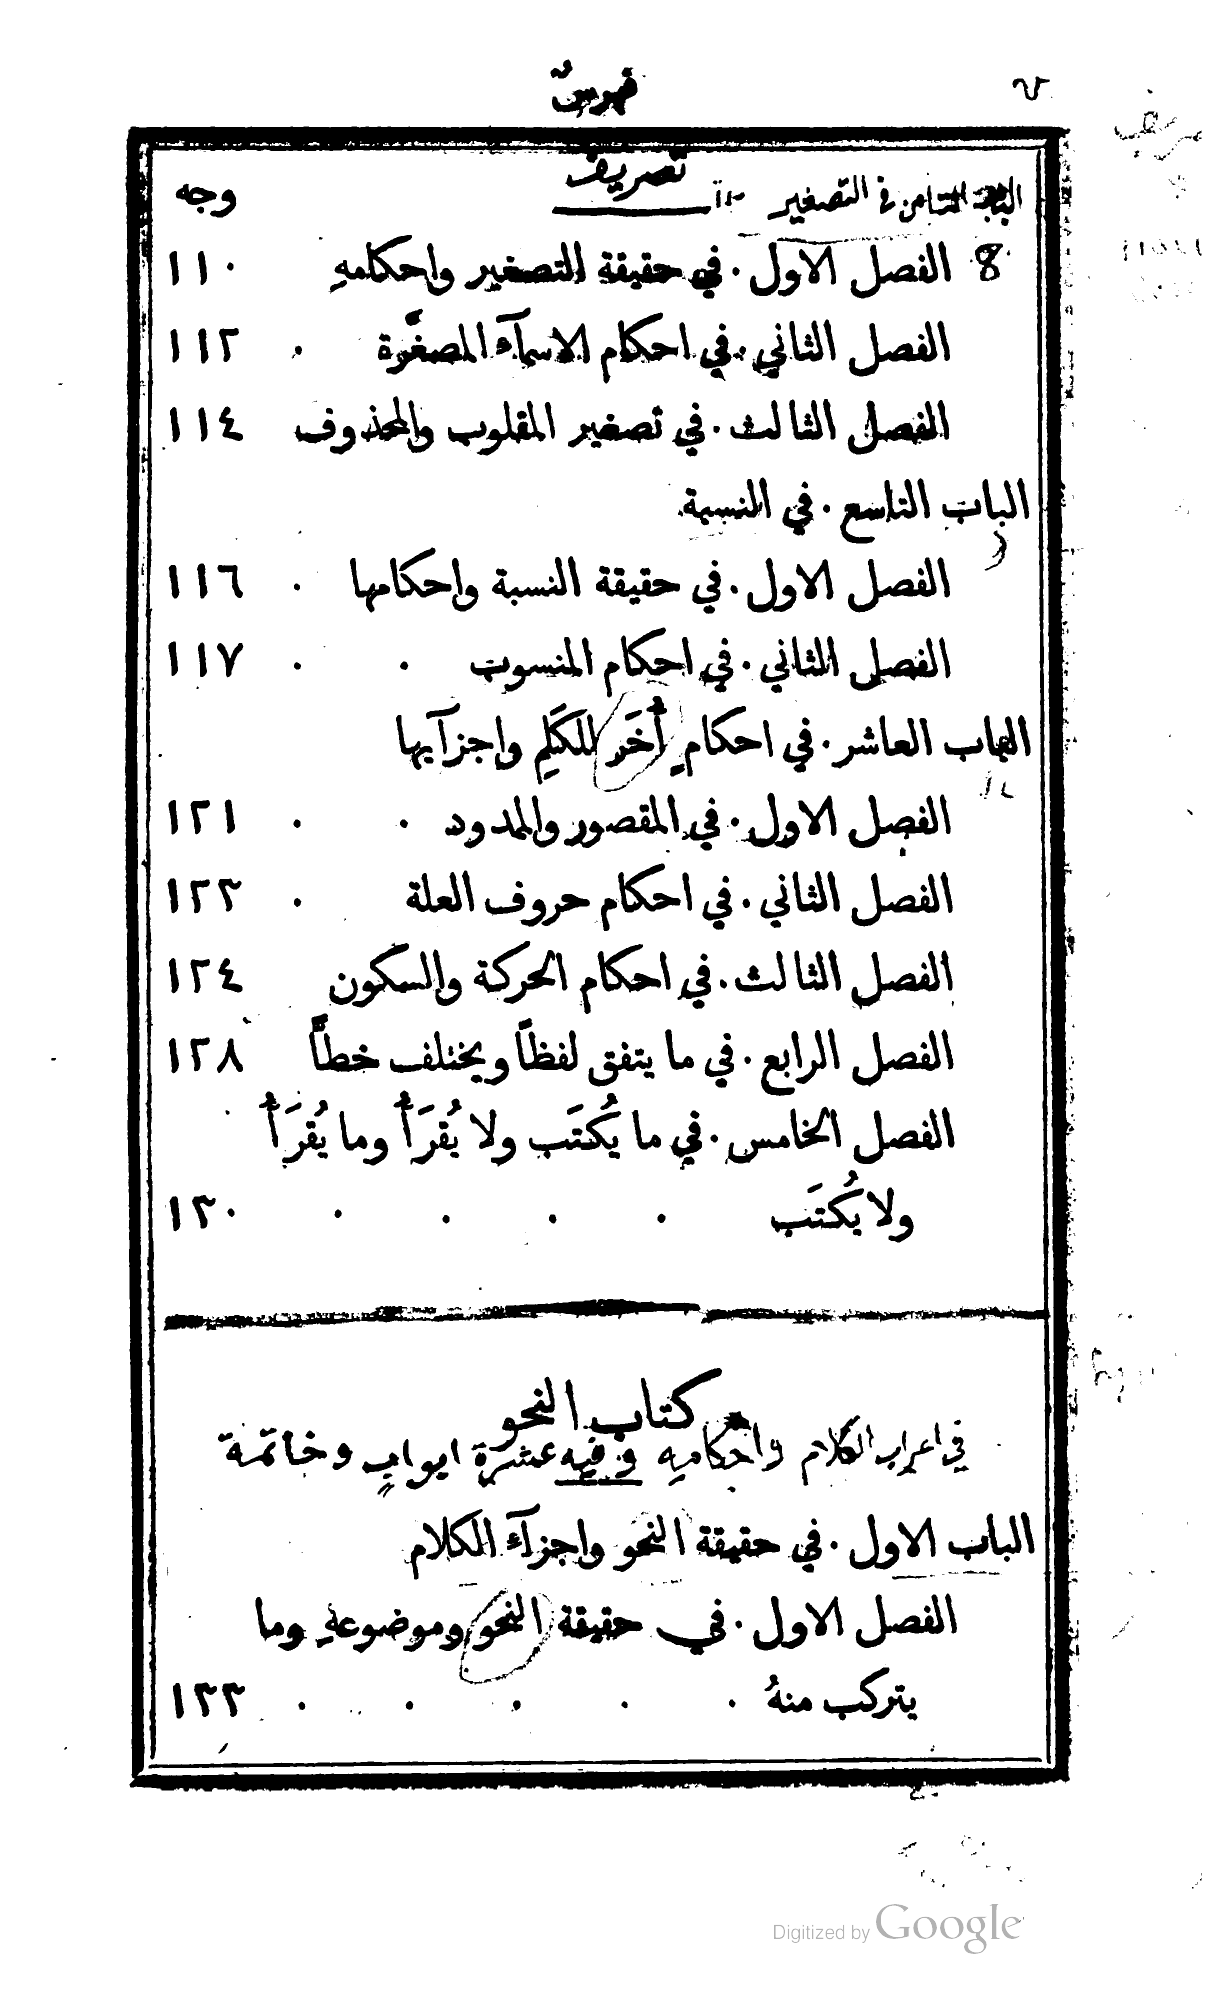 فهرسٌ
تصريف
الباب الثامن في التصغير
وجه
8 الفصل الاول. في حقيقة التصغير واحكامهِ ١١٠
الفصل الثاني. في احكام الاسمآء المصغَّرة . ١١٢
الفصل الثالث. في تصغير المقلوب والمحذوف ١١٤
الباب التاسع. في النسبة
الفصل الاول. في حقيقة النسبة واحكامها . ١١٦
الفصل الثاني. في احكام المنسوب . . ١١٧
الباب العاشر. في احكامٍ أُخَر للكَلِمِ واجزآيها
الفصل الاول. في المقصور والممدود . . ١٢١
الفصل الثاني. في احكام حروف العلة . ١٢٣
الفصل الثالث. في احكام الحركة والسكون ١٢٤
الفصل الرابع. في ما يتفق لفظًا ويختلف خطًّا ١٢٨
الفصل الخامس. في ما يُكتَب ولا يُقرَأُ وما يُقرَأُ
ولا يُكتَب . . . . ١٣٠
كتاب النحو
في اعراب الكلام واحكامهِ وفيه عشرة ابوابٍ وخاتمة
الباب الاول. في حقيقة النحو واجزآء الكلام
الفصل الاول. في حقيقة النحو وموضوعهِ وما
يتركب منهُ . . . . . ١٣٣
Digitized by Google